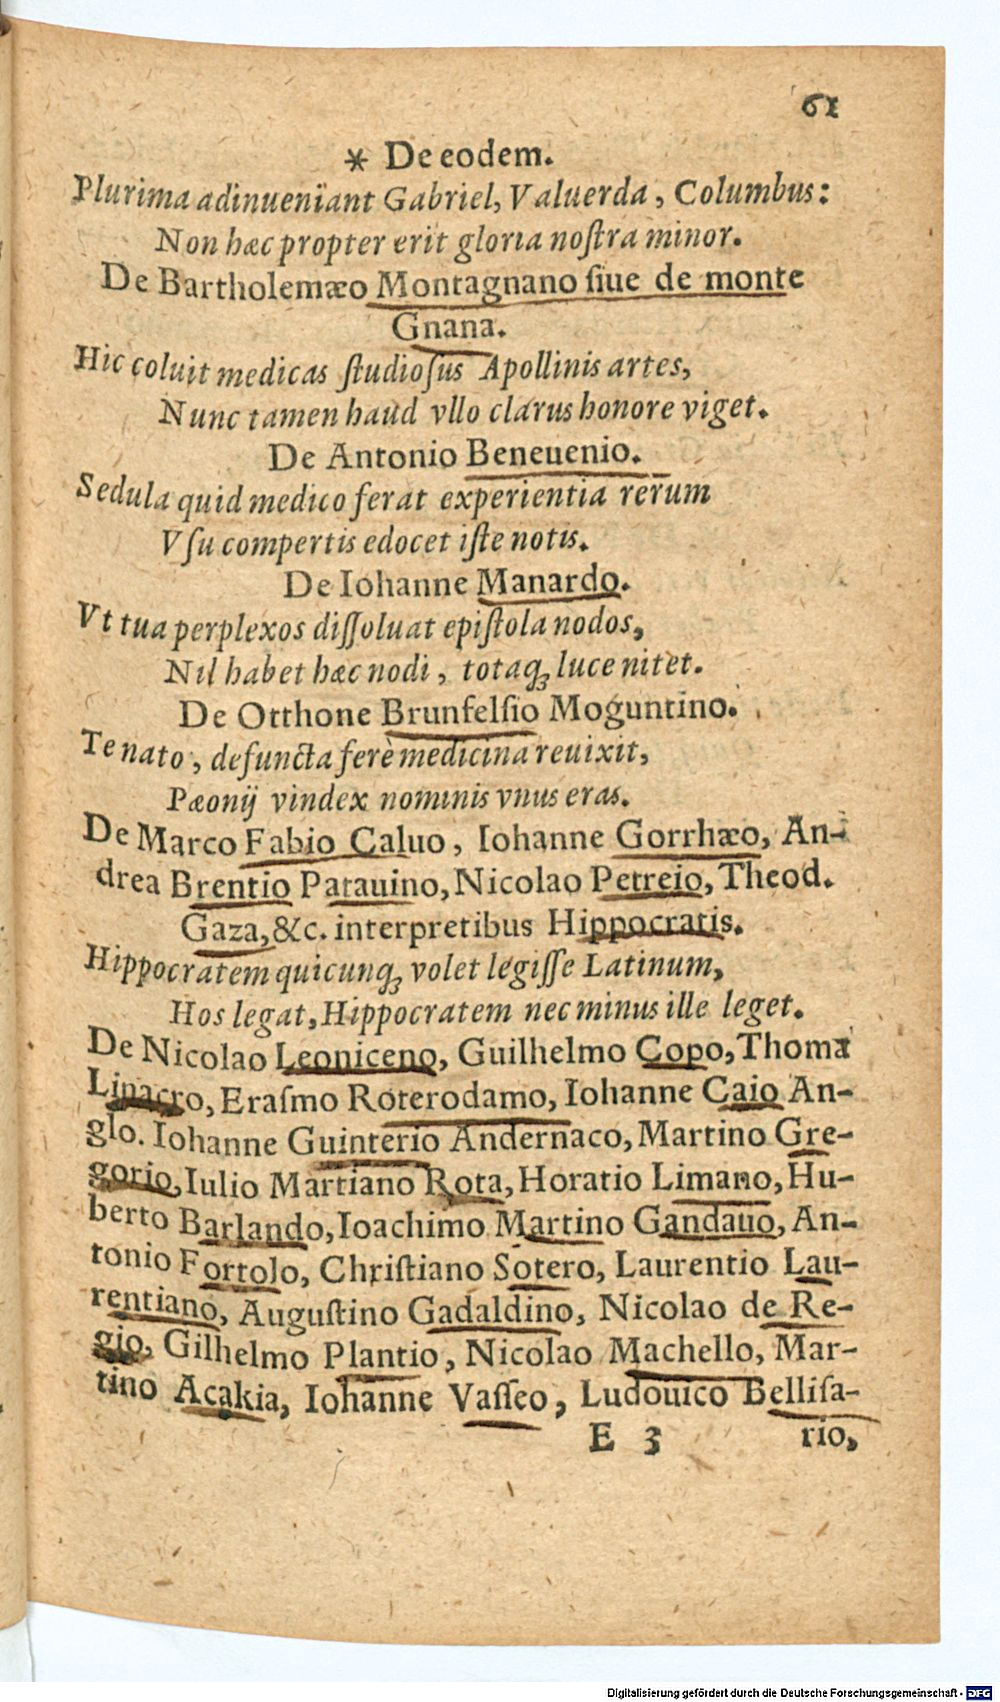 61
* De eodem.
Plurima adinueniant Gabriel, Valuerda, Columbus:
Non hæc propter erit gloria noſtra minor.
De Bartholemæo Montagnano ſiue de monte
Gnana.
Hic coluit medicas ſtudioſus Apollinis artes,
Nunc tamen haud vllo clarus honore viget.
De Antonio Beneuenio.
Sedula quid medico ferat experientia rerum
Vſu compertis edocet iſte notis.
De Iohanne Manardo.
Vt tua perplexos diſſoluat epiſtola nodos,
Nil habet hæc nodi, totaq; luce nitet.
De Otthone Brunfelſio Moguntino.
Te nato, defuncta ferè medicina reuixit,
Pæonij vindex nominis vnus eras.
De Marco Fabio Caluo, Iohanne Gorrhæo, An-
drea Brentio Patauino, Nicolao Petreio, Theod.
Gaza, &c. interpretibus Hippocratis.
Hippocratem quicunq; volet legiſſe Latinum,
Hos legat, Hippocratem nec minus ille leget.
De Nicolao Leoniceno, Guilhelmo Copo, Thoma
Linacro, Eraſmo Roterodamo, Iohanne Caio An-
glo. Iohanne Guinterio Andernaco, Martino Gre-
gorio, Iulio Martiano Rota, Horatio Limano, Hu-
berto Barlando, Ioachimo Martino Gandauo, An-
tonio Fortolo, Chriſtiano Sotero, Laurentio Lau-
rentiano, Auguſtino Gadaldino, Nicolao de Re-
gio, Gilhelmo Plantio, Nicolao Machello, Mar-
tino Acakia, Iohanne Vaſſeo, Ludouico Belliſa-
E 3 rio,
Digitalisierung gefördert durch die Deutsche Forschungsgemeinschaft - DFG